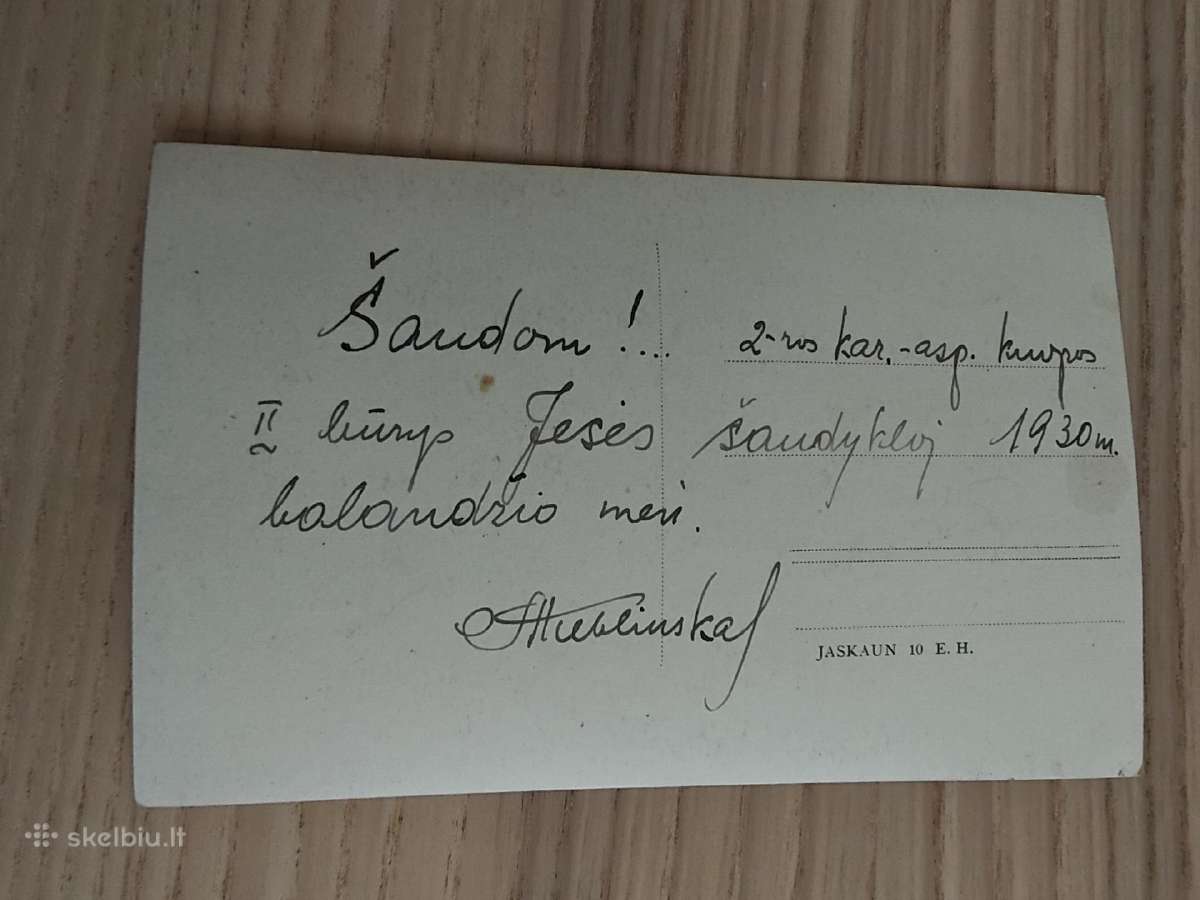 Šaudom!... 2-ros kar.-asp. kuopos
II būrys Jėsės šaudykloj 1930 m.
balandžio mėn.
JASKAUN 10 E. H.
skelbiu.lt